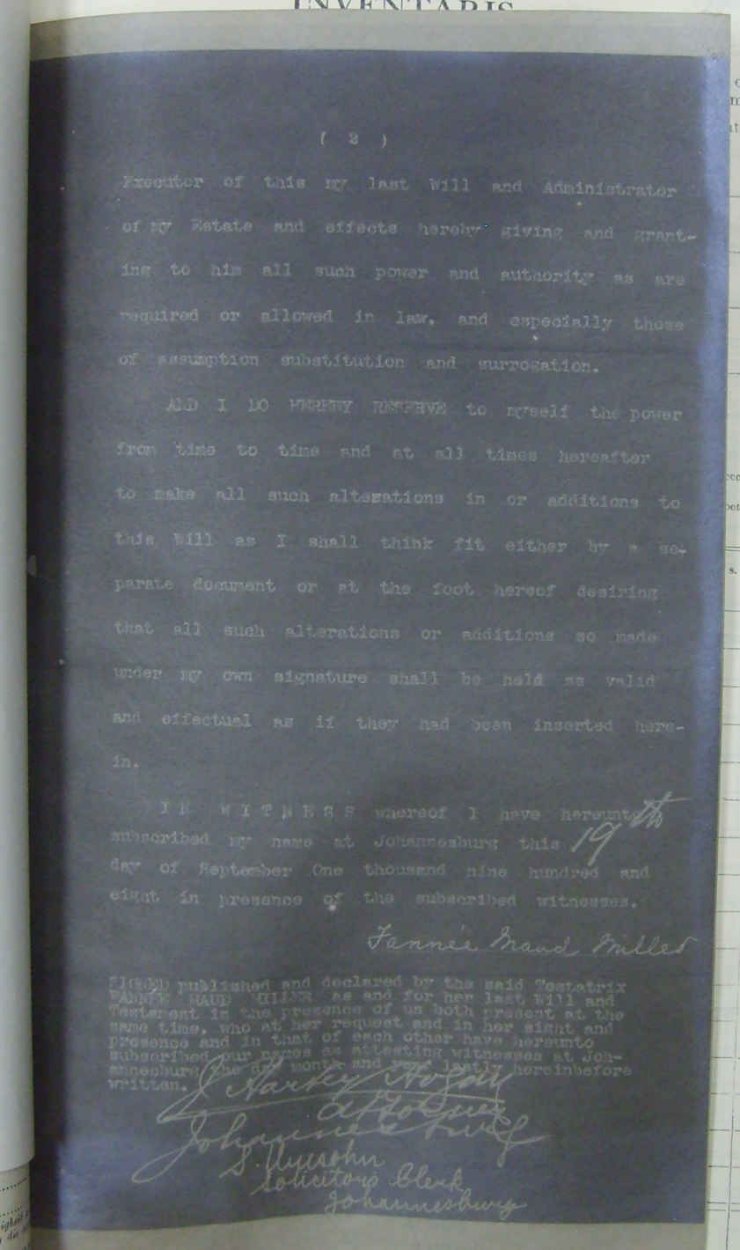 INVENTARIS
( 2 )
Executor of this my last Will and Administrator
of my Estate and effects hereby giving and grant-
ing to him all such power and authority as are
required or allowed in law, and especially those
of assumption substitution and surrogation.
AND I DO HEREBY RESERVE to myself the power
from time to time and at all times hereafter
to make all such alterations in or additions to
this Will as I shall think fit either by a se-
parate document or at the foot hereof desiring
that all such alterations or additions so made
under my own signature shall be held as valid
and effectual as if they had been inserted here-
in.
IN WITNESS whereof I have hereunto
subscribed my name at Johannesburg this 19th
day of September One thousand nine hundred and
eight in presence of the subscribed witnesses.
Fannie Maud Miller
SIGNED published and declared by the said Testatrix
FANNIE MAUD MILLER as and for her last Will and
Testament in the presence of us both present at the
same time, who at her request and in her sight and
presence and in that of each other have hereunto
subscribed our names as attesting witnesses at Joh-
annesburg the day month and year lastly hereinbefore
written.
J Harvey
Attorney
Johannesburg
S.
Solicitors Clerk
Johannesburg